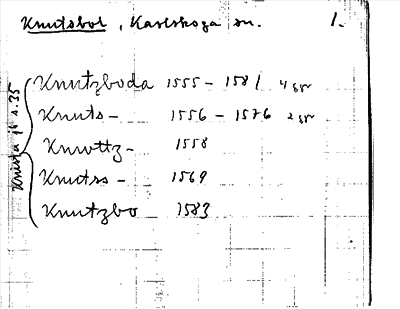 Knutsbol, Karlskoga sn. 1.
Knutzboda 1555 - 1581 4 ggr
Knuts- 1556 - 1576 2 ggr
Knwttz- 1558
Knutss - 1569
Knutzbo 1583
s. 35